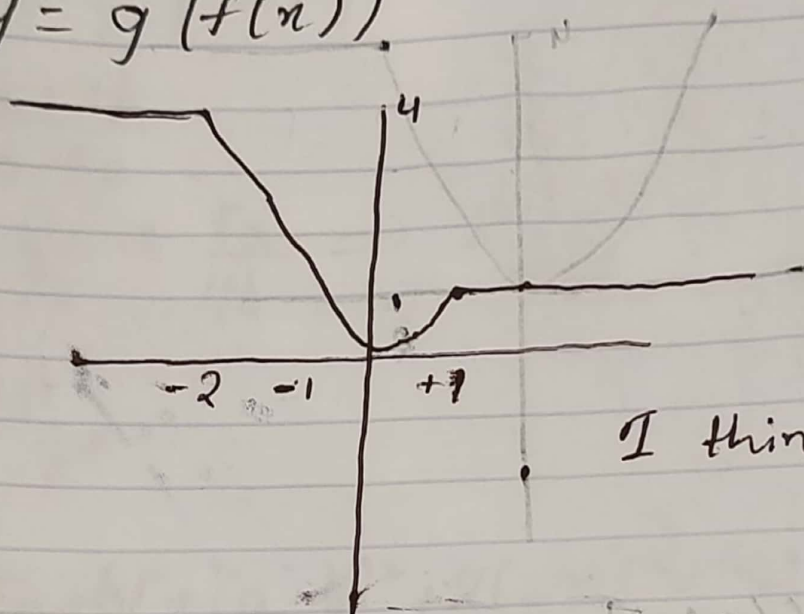 y = g(f(x))
4
-2 -1 +1
I thin